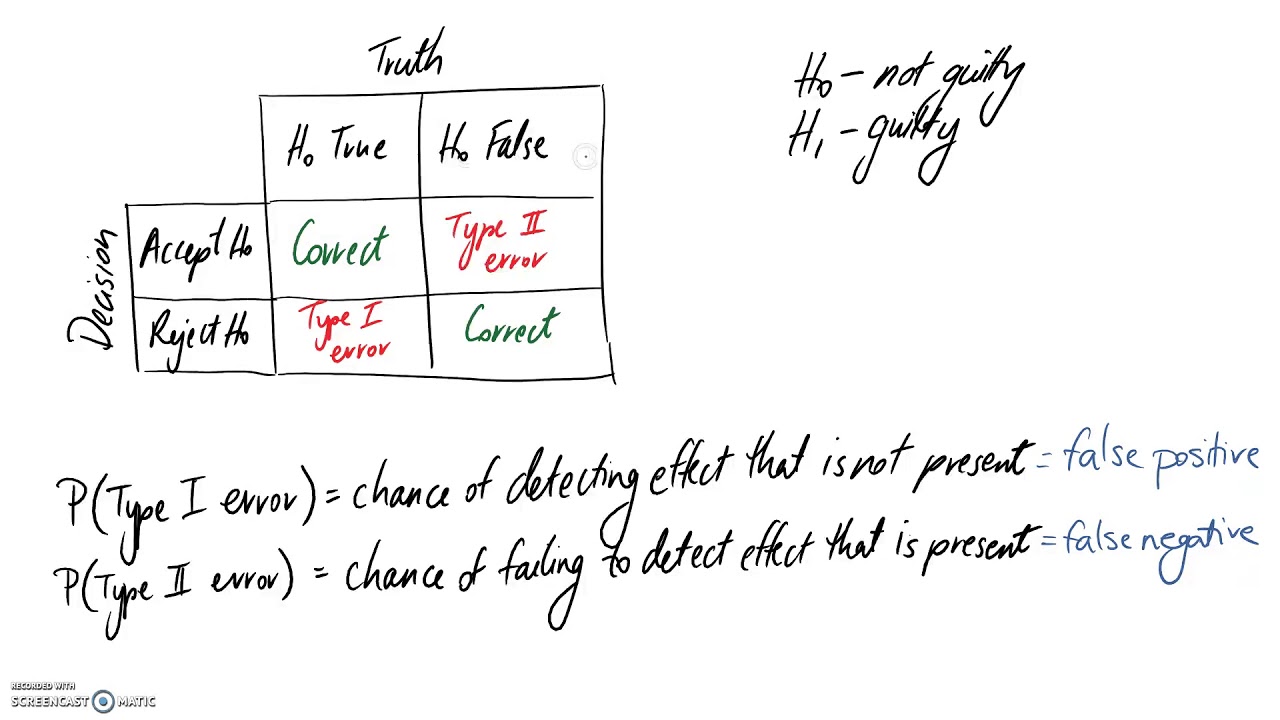 Truth
H₀ True H₀ False
Decision
Accept H₀ Correct Type II error
Reject H₀ Type I error Correct
H₀ – not guilty
H₁ – guilty
P(Type I error) = chance of detecting effect that is not present = false positive
P(Type II error) = chance of failing to detect effect that is present = false negative
RECORDED WITH
SCREENCAST MATIC